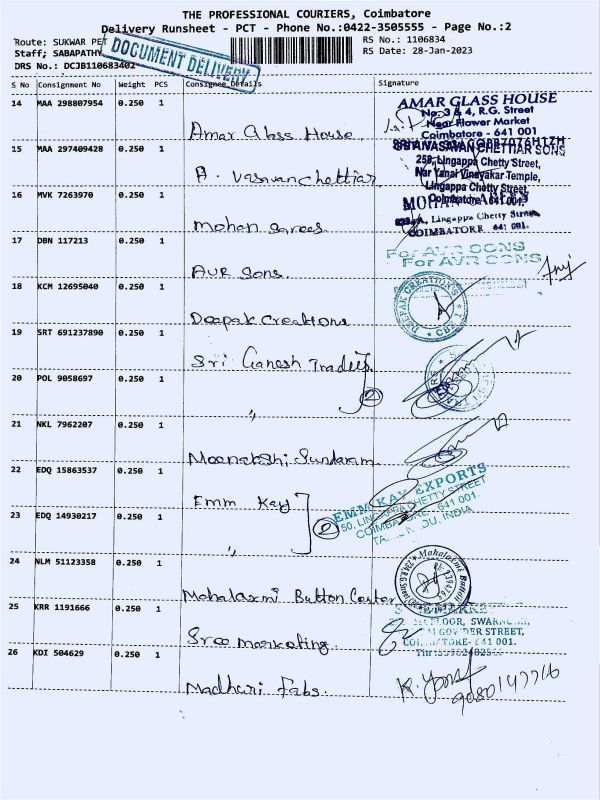 THE PROFESSIONAL COURIERS, Coimbatore
Delivery Runsheet - PCT - Phone No.:0422-3505555 - Page No.:2
Route: SUKWAR PET
RS No.: 1106834
Staff; SABAPATHY
RS Date: 28-Jan-2023
DRS No.: DCJB110683402
DOCUMENT DELIVERY
S No Consignment No Weight PCS Consignee Details Signature
14 MAA 298807954 0.250 1 Amar Glass House
AMAR GLASS HOUSE
No. 3 & 4, R.G. Street
Near Flower Market
Coimbatore - 641 001
15 MAA 297409428 0.250 1 A. Vasivan Chettiar
CHETTIAR SONS
258, Lingappa Chetty Street,
Vinayakar Temple,
Lingappa Chetty Street,
Coimbatore - 641 001.
16 MVK 7263970 0.250 1 Mohan Sarees
Lingappa Chetty Street
COIMBATORE 641 001.
17 DBN 117213 0.250 1 AVR Sons
For AVR SONS
For AVR SONS
18 KCM 12695040 0.250 1 Deepak Creations
DEEPAK CREATIONS
19 SRT 691237890 0.250 1 Sri Ganesh Traders
20 POL 9058697 0.250 1 " 2
21 NKL 7962207 0.250 1 Meenakshi Sundaram
22 EDQ 15863537 0.250 1 Emm Kay
EMM KAY EXPORTS
50, LINGAPPA CHETTY STREET
COIMBATORE - 641 001.
INDIA
23 EDQ 14930217 0.250 1 " 2
24 NLM 51123358 0.250 1 Mahalaxmi Button Center
Mahalaxmi Button
25 KRR 1191666 0.250 1 Sree Marketing
FLOOR, SWARN
STREET,
641 001.
26 KDI 504629 0.250 1 Madhuri Fabs.